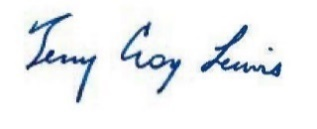 Terry Croy Lewis